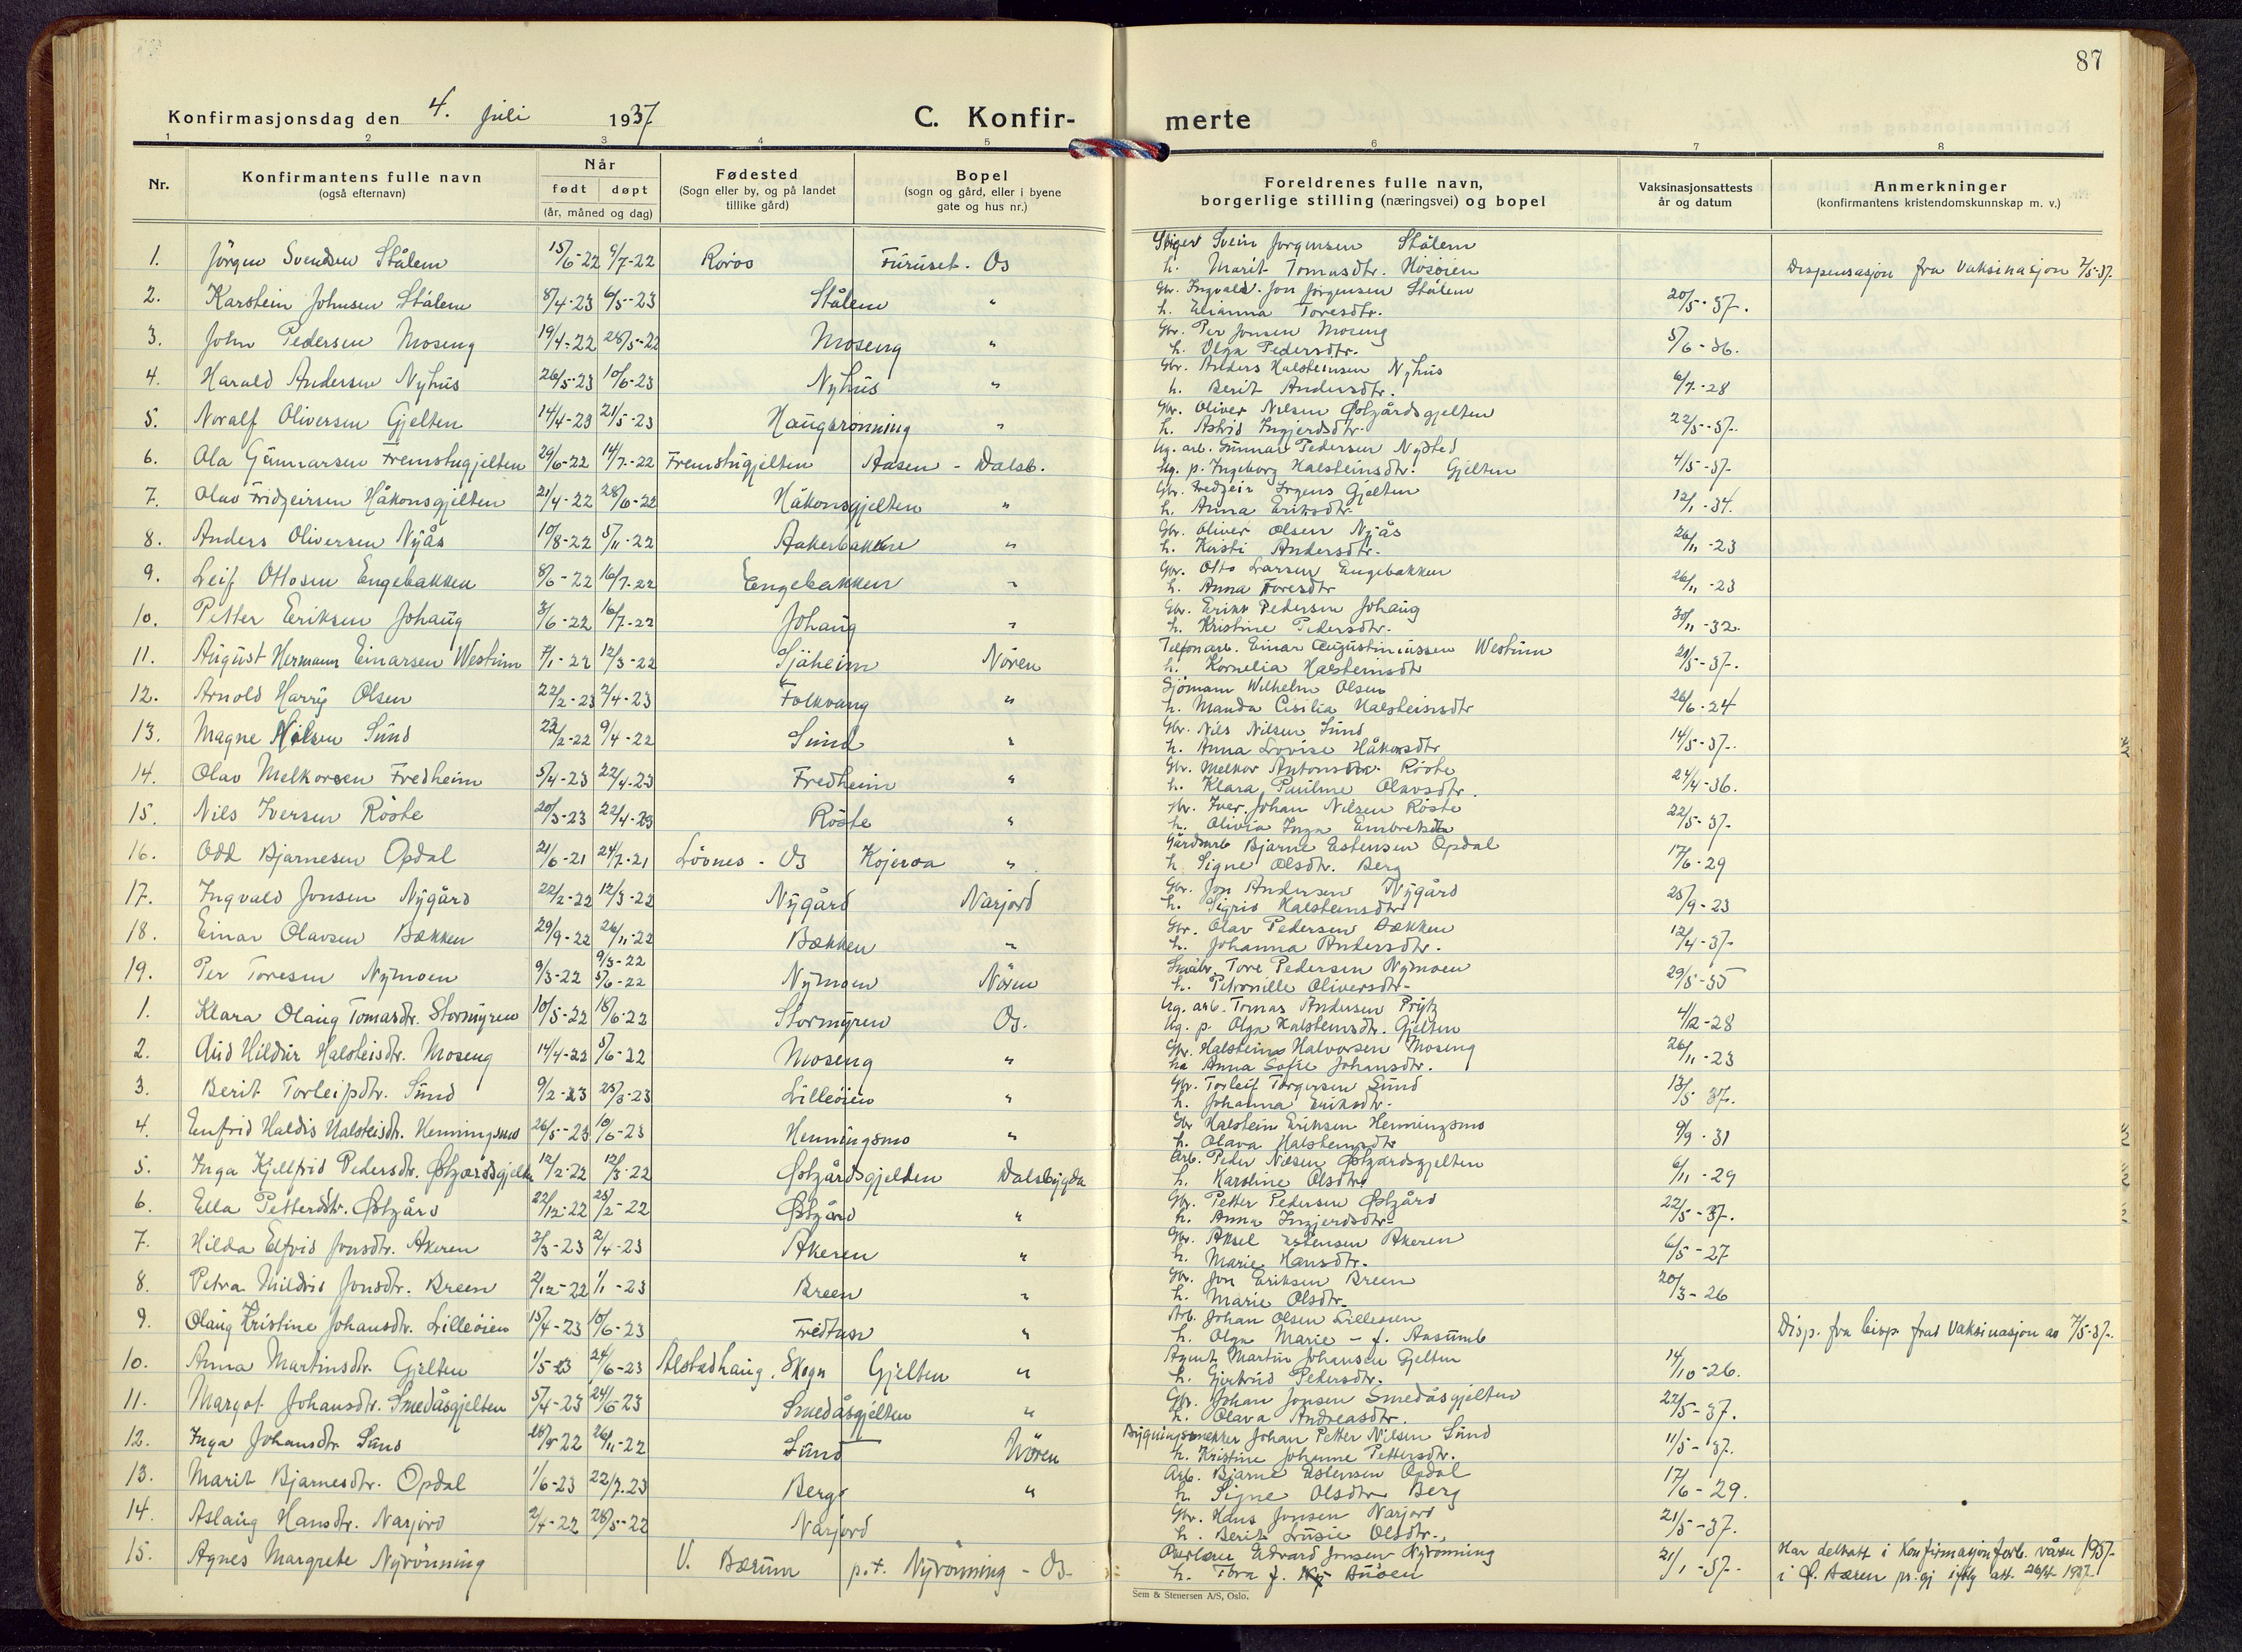 87
Konfirmasjonsdag den 4. juli 1937 C. Konfir- merte
1 2 3 4 5 6 7 8
Nr. Konfirmantens fulle navn (også efternavn) Når født døpt (år, måned og dag) Fødested (Sogn eller by, og på landet tillike gård) Bopel (sogn og gård, eller i byene gate og hus nr.) Foreldrenes fulle navn, borgerlige stilling (næringsvei) og bopel Vaksinasjonsattests år og datum Anmerkninger (konfirmantens kristendomskunnskap m. v.)
1. Jörgen Svendsen Stålem 15/6-22 9/7-22 Röros Furuset. Os Stiger Svein Jorgensen Stålem
h. Marit Tomasdtr. Hösöien Dispensasjon fra Vaksinasjon 7/5-37.
2. Karstein Johnsen Stålem 8/4-23 6/5-23 Stålem " Gbr. Ingvald. Jon Jörgensen Stålem
h. Elianna Toresdtr. 20/5-37.
3. John Pedersen Moseng 19/4-22 28/5-22 Moseng " Gbr. Per Jonsen Moseng
h. Olga Pedersdtr. 5/6-36.
4. Harald Andersen Nyhus 26/5-23 10/6-23 Nyhus " Gbr. Anders Halsteinsen Nyhus
h. Berit Andersdtr. 6/7-28
5. Noralf Oliversen Gjelten 14/4-23 21/5-23 Haugsrönning " Gbr. Oliver Nilsen Østgårdsgjelten
h. Astrid Ingjerdsdtr. 22/5-37.
6. Ola Gunnarsen Fremstugjelten 29/6-22 14/7-22 Fremstugjelten Aasen - Dalsb. Ug. arb. Gunnar Pedersen Nysted
Ug. p. Ingeborg Halsteinsdtr. Gjelten 4/5-37.
7. Olav Fridgeirsen Håkonsgjelten 21/4-22 28/6-22 Håkonsgjelten " Gbr. Fredgeir Irgens Gjelten
h. Anna Eriksdtr. 12/1-34.
8. Anders Oliversen Nyås 10/8-22 5/11-22 Aakerbakken " Gbr. Oliver Olsen Nyås
h. Kirsti Andersdtr. 26/11-23
9. Leif Ottosen Engebakken 8/6-22 16/7-22 Engebakken " Gbr. Otto Larsen Engebakken
h. Anna Toresdtr 26/11-23
10. Petter Eriksen Johaug 3/6-22 16/7-22 Johaug " Gbr. Erik Pedersen Johaug
h. Kristine Pedersdtr. 30/11-32.
11. August Hermann Einarsen Westum 7/1-22 12/3-22 Sjåheim Nören Telfonarb. Einar Augustiniussen Westum
h. Kornelia Halsteinsdtr 21/5-37.
12. Arnold Harry Olsen 22/2-23 2/4-23 Folkvang " Sjömann Wilhelm Olsen
h. Manda Cisilia Halsteinsdtr 26/6-24
13. Magne Nilsen Sund 23/2-22 9/4-22 Sund " Gbr. Nils Nilsen Sund
h. Anna Lovise Håkonsdtr 14/5-37.
14. Olav Melkorsen Fredheim 5/4-23 22/4-23 Fredheim " Gbr. Melkor Antonsen Röste
h. Klara Pauline Olavsdtr. 24/4-36.
15. Nils Iversen Röste 20/3-23 22/4-23 Röste " Gbr. Iver Johan Nilsen Röste
h. Olivia Inga Embretsdtr 22/5-37.
16. Odd Bjarnesen Opdal 21/6-21 24/7-21 Lövnes - Os Kojeroa " Gårdsarb Bjarne Estensen Opdal
h. Signe Olsdtr. Berg 17/6-29
17. Ingvald Jonsen Nygård 22/2-22 12/3-22 Nygård Narjord Gbr. Jon Andersen Nygård
h. Sigrid Halsteinsdtr 25/9-23
18. Einar Olavsen Bækken 29/9-22 26/11-22 Bækken " Gbr. Olav Pedersen Bækken
h. Johanna Andersdtr. 12/4-37.
19. Per Toresen Nymoen 9/3-22 9/3-22 5/6-22 Nymoen Nören Småbr. Tore Pedersen Nymoen
h. Petronille Oliversdtr. 29/5-35
1. Klara Olaug Tomasdtr. Stormyren 10/5-22 18/6-22 Stormyren Os. Ug. arb. Tomas Andersen Prytz
Ug. p. Olga Halsteinsdtr. Gjelten 4/2-28
2. Aud Hildur Halsteisdtr. Moseng 14/4-22 5/6-22 Moseng " Gbr. Halstein Halvorsen Moseng
h. Anna Sofie Johansdtr. 26/11-23
3. Berit Torleifsdtr. Sund 9/2-23 25/3-23 Lilleöien " Gbr. Torleif Torgersen Sund
h. Johanna Eriksdtr. 13/5 37.
4. Enfrid Haldis Halsteisdtr. Henningsmo 26/5-23 10/6-23 Henningsmo " Gbr Halstein Eriksen Henningsmo
h. Olava Halsteinsdtr 9/9-31
5. Inga Kjellfrid Pedersdtr. Østgårdsgjelten 12/2-22 12/3-22 Østgårdsgjelten Dalsbygda Arb. Peder Nilsen Østgårdsgjelten
h. Karoline Olsdtr. 6/11-29
6. Ella Pettersdtr. Østgård 22/12-22 25/2-22 Østgård " Gbr. Petter Pedersen Østgård
h. Anna Ingjerdsdtr. 22/5-37.
7. Hilda Elfrid Jonsdtr. Akeren 3/3-23 2/4-23 Akeren " Gbr. Aksel Estensen Akeren
h. Marie Hansdtr. 6/5-27
8. Petra Mildrid Jonsdtr. Breen 2/12-22 1/1-23 Breen " Gbr. Jon Eriksen Breen
h. Marie Olsdtr. 20/3-26
9. Olaug Kristine Johansdtr. Lilleöien 15/4-23 10/6-23 Fredtun " Arb. Johan Olsen Lilleöien
h. Olga Marie - f. Aasumb Disp. fra bisp. frad Vaksinasjon av 7/5-37.
10. Anna Martinsdtr. Gjelten 1/5-23 24/6-23 Alstadhaug. Skogn Gjelten " Agent Martin Johansen Gjelten
h. Gjertrud Pedersdtr. 14/10-26.
11. Margot Johansdtr. Smedåsgjelten 5/4-23 24/6-23 Smedåsgjelten " Gbr. Johan Jonsen Smedåsgjelten
h. Olava Andreasdtr. 22/5-37.
12. Inga Johansdtr Sund 28/9-22 26/11-22 Sund Nören Bygningssnekker Johan Petter Nilsen Sund
h. Kristine Johanne Pettersdtr. 11/5-37.
13. Marit Bjarnesdtr. Opdal 1/6-23 22/7.23 Berg " Arb. Bjarne Estensen Opdal
h. Signe Olsdtr Berg 17/6-29.
14. Aslaug Hansdtr. Narjord 2/4-22 28/5-22 Narjord Gbr. Hans Jonsen Narjord
h. Berit Lusie Olsdtr. 21/5-37.
15. Agnes Margrete Nyrönning V. Bærum p.t. Nyrönning - Os. Overlærer Edvard Jonsen Nyrönning
h. Tora f. Auoen 21/1-37. Har deltatt i Konfirmasjonsforb. våren 1937
i Ø. Bærum pr. gj iflg att. 26/4 1937
Sem & Stenersen A/S, Oslo.